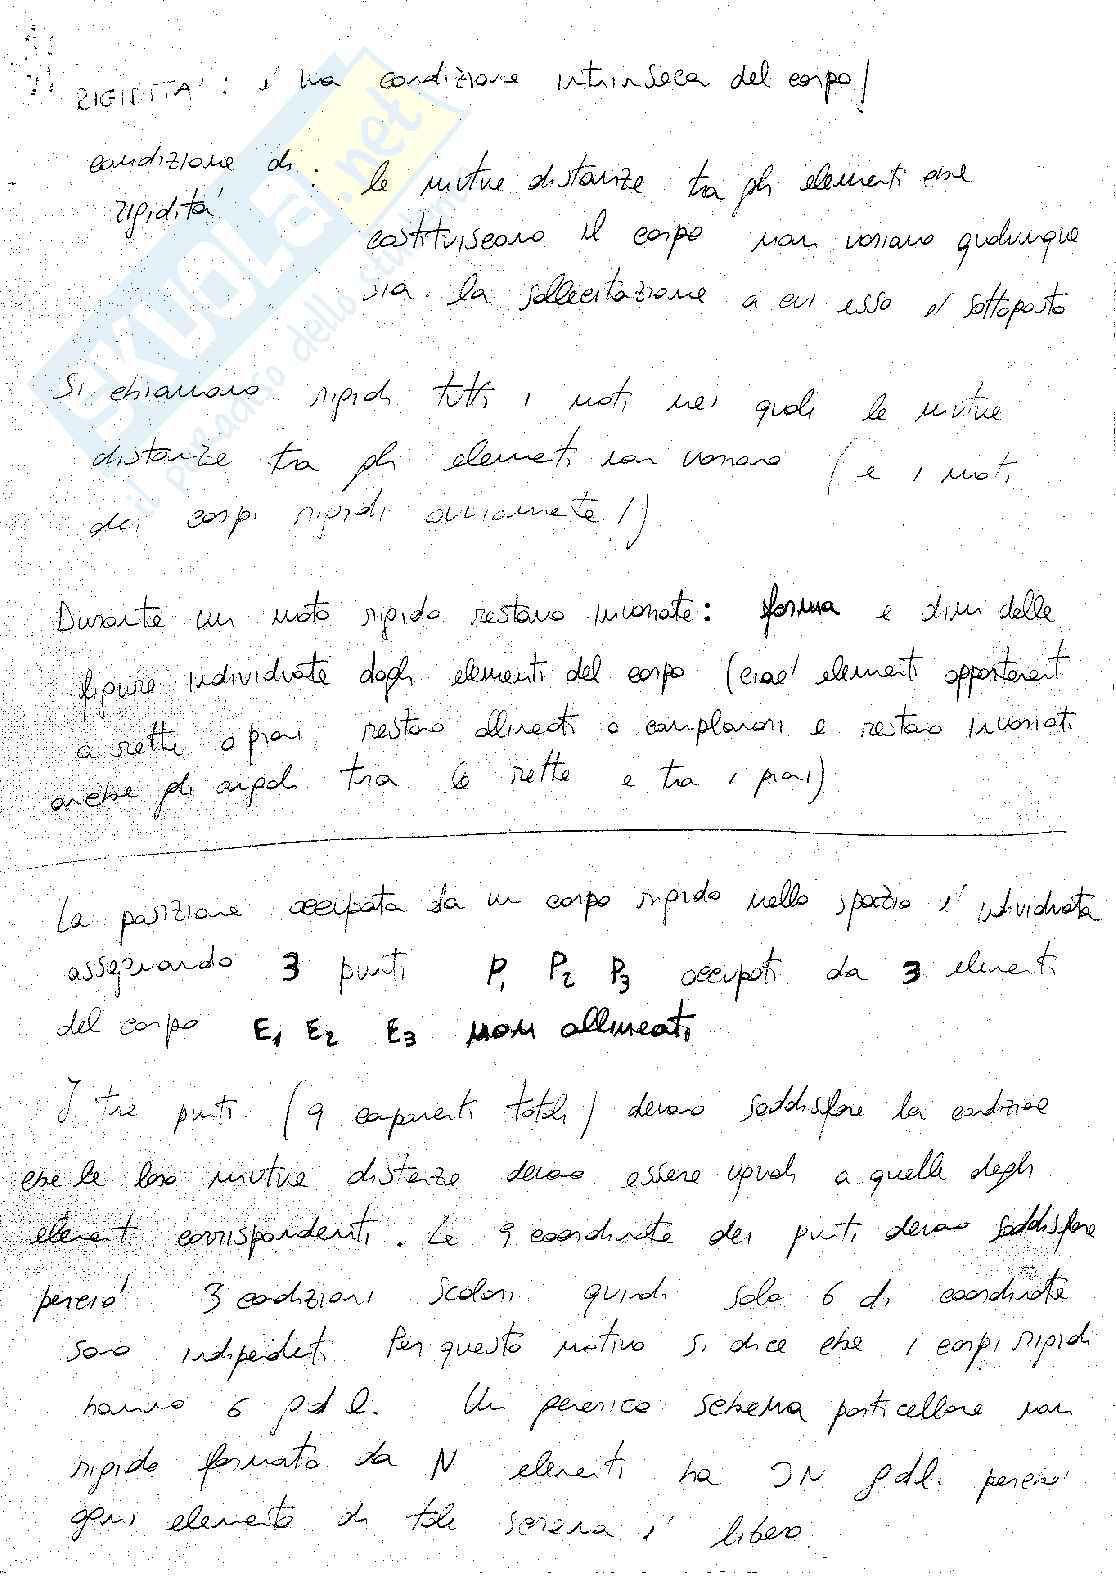 RIGIDITA': è una condizione intrinseca del corpo!
condizione di : le mutue distanze tra gli elementi che
rigidità
costituiscono il corpo non variano qualunque
sia la sollecitazione a cui esso è sottoposto
Si chiamano rigidi tutti i moti nei quali le mutue
distanze tra gli elementi non variano (e i moti
dei corpi rigidi ovviamente!)
Durante un moto rigido restano invariate: forma e dim delle
figure individuate dagli elementi del corpo (cioè elementi appartenenti
a rette o piani restano allineati o complanari e restano invariati
anche gli angoli tra le rette e tra i piani)
La posizione occupata da un corpo rigido nello spazio è individuata
assegnando 3 punti P1 P2 P3 occupati da 3 elementi
del corpo E1 E2 E3 non allineati
I tre punti (9 componenti totali) devono soddisfare la condizione
che le loro mutue distanze devono essere uguali a quelle degli
elementi corrispondenti. Le 9 coordinate dei punti devono soddisfare
perciò 3 condizioni scalari quindi solo 6 di coordinate
sono indipendenti. Per questo motivo si dice che i corpi rigidi
hanno 6 gdl. Un generico schema particellare non
rigido formato da N elementi ha 3N gdl. perché
ogni elemento di tale schema è libero
SKUOLA.net
il paradiso dello studente